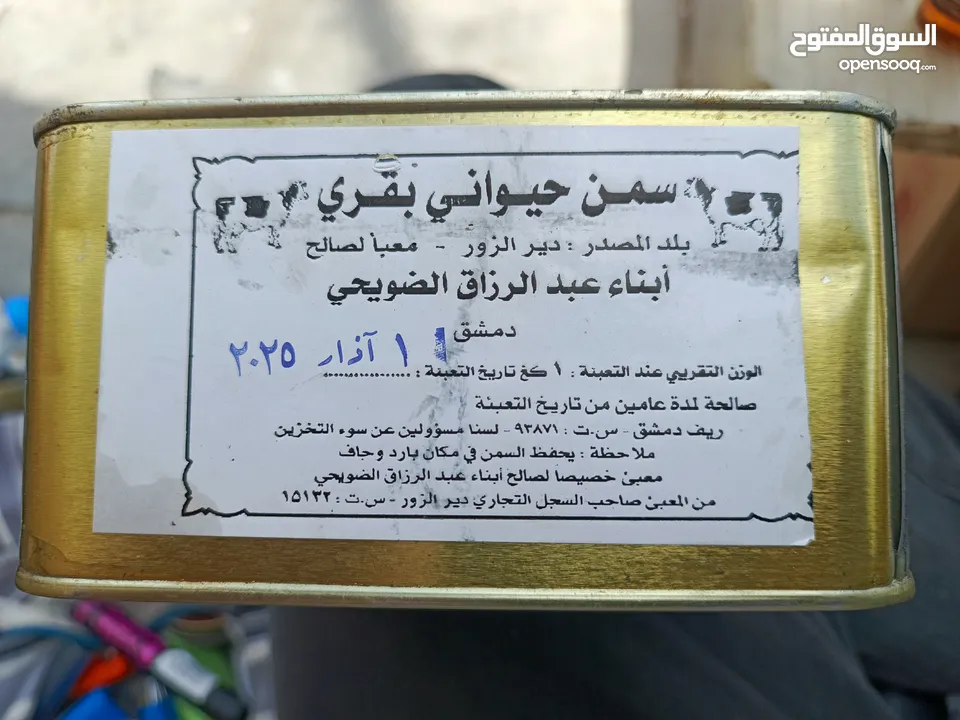 السوق المفتوح
opensooq.com
سمن حيواني بقري
بلد المصدر : دير الزور - معبأ لصالح
أبناء عبد الرزاق الضويحي
دمشق
الوزن التقريبي عند التعبئة : ١ كغ تاريخ التعبئة : ١ آذار ٢٠٢٥
صالحة لمدة عامين من تاريخ التعبئة
ريف دمشق - س.ت : ٩٣٨٧١ - لسنا مسؤولين عن سوء التخزين
ملاحظة : يحفظ السمن في مكان بارد وجاف
معبئ خصيصاً لصالح أبناء عبد الرزاق الضويحي
من المعبئ صاحب السجل التجاري دير الزور - س.ت : ١٥١٣٢